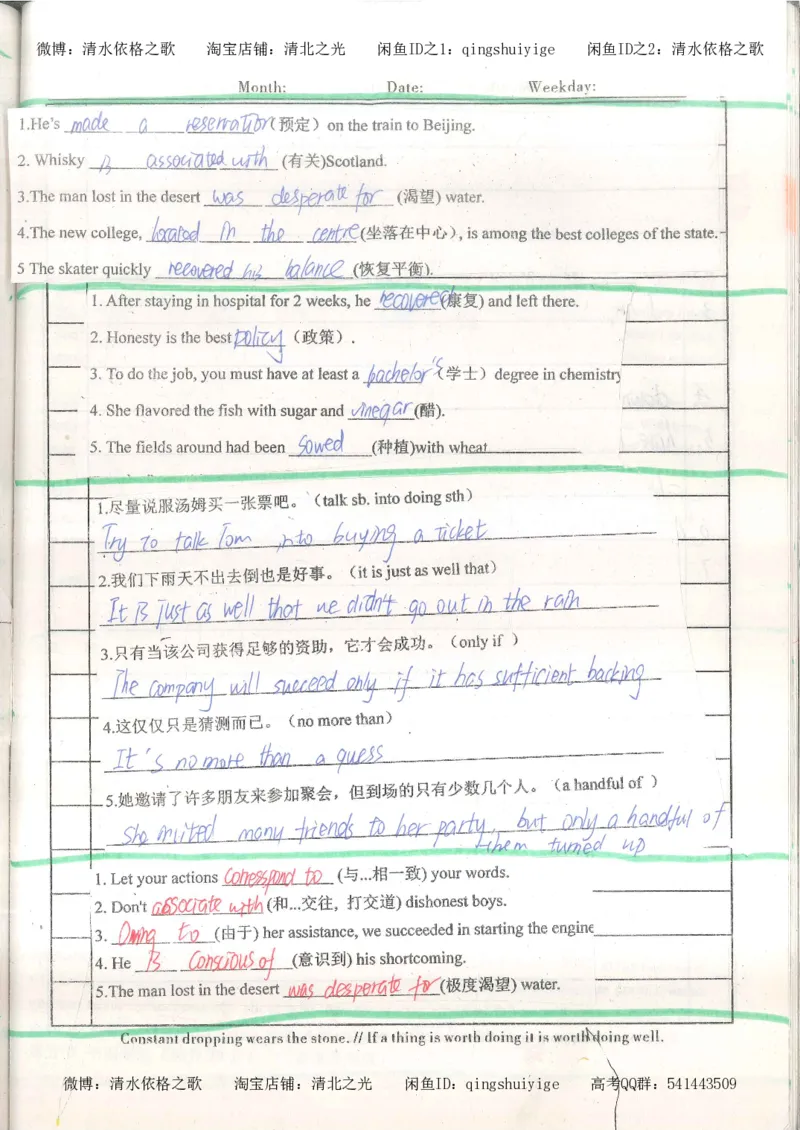 微博：清水依格之歌 淘宝店铺：清北之光 闲鱼ID之1：qingshuiyige 闲鱼ID之2：清水依格之歌
Month: Date: Weekday:
1.He's made a reservation(预定）on the train to Beijing.
2. Whisky is associated with (有关)Scotland.
3.The man lost in the desert was desperate for (渴望) water.
4.The new college, located in the centre(坐落在中心), is among the best colleges of the state.
5 The skater quickly recovered his balance (恢复平衡).
1. After staying in hospital for 2 weeks, he recovered(康复) and left there.
2. Honesty is the best policy（政策）.
3. To do the job, you must have at least a bachelor's（学士）degree in chemistry
4. She flavored the fish with sugar and vinegar(醋).
5. The fields around had been sowed (种植)with wheat
1.尽量说服汤姆买一张票吧。（talk sb. into doing sth）
Try to talk Tom into buying a ticket
2.我们下雨天不出去倒也是好事。（it is just as well that）
It is just as well that we didn't go out in the rain
3.只有当该公司获得足够的资助，它才会成功。（only if ）
The company will succeed only if it has sufficient backing
4.这仅仅只是猜测而已。（no more than）
It's no more than a guess
5.她邀请了许多朋友来参加聚会，但到场的只有少数几个人。（a handful of ）
She invited many friends to her party, but only a handful of
them turned up
1. Let your actions correspond to (与...相一致) your words.
2. Don't associate with (和...交往, 打交道) dishonest boys.
3. Owing to (由于) her assistance, we succeeded in starting the engine
4. He is conscious of (意识到) his shortcoming.
5.The man lost in the desert was desperate for (极度渴望) water.
Constant dropping wears the stone. // If a thing is worth doing it is worth doing well.
微博：清水依格之歌 淘宝店铺：清北之光 闲鱼ID：qingshuiyige 高考QQ群：541443509